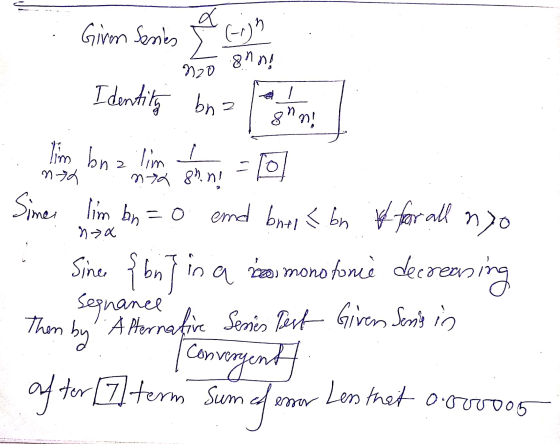 Given Series ∑_{n=0}^{α} (-1)^n / 8^n n!
Identity bn = 1 / 8^n n!
lim_{n→α} bn = lim_{n→α} 1 / 8^n. n! = 0
Since lim_{n→α} bn = 0 and bn+1 ≤ bn for all n>0
Since {bn} in a monotonic decreasing
seqnance
Then by Alternative Series Test Given Series in
Convergent
after 7 term Sum of error Less that 0.000005